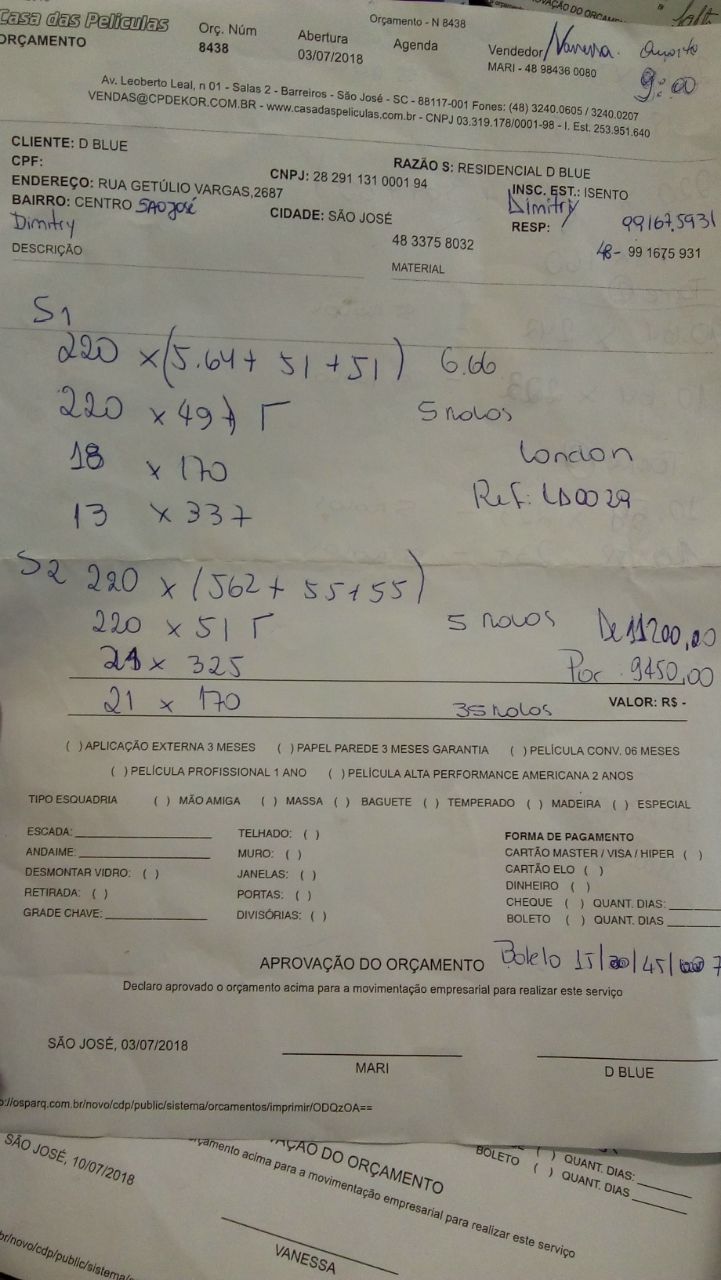 Casa das Películas
ORÇAMENTO
Orç. Núm
8438
Abertura
03/07/2018
Orçamento - N 8438
Agenda
Vendedor Vanessa.
MARI - 48 98436 0080
9:00
Av. Leoberto Leal, n 01 - Salas 2 - Barreiros - São José - SC - 88117-001 Fones: (48) 3240.0605 / 3240.0207
VENDAS@CPDEKOR.COM.BR - www.casadaspeliculas.com.br - CNPJ 03.319.178/0001-98 - I. Est. 253.951.640
CLIENTE: D BLUE
CPF:
CNPJ: 28 291 131 0001 94
RAZÃO S: RESIDENCIAL D BLUE
ENDEREÇO: RUA GETÚLIO VARGAS,2687
INSC. EST.: ISENTO
BAIRRO: CENTRO SAO JOSÉ
CIDADE: SÃO JOSÉ
Dimitry
RESP:
991675931
Dimitry
48 3375 8032
48- 99 1675 931
DESCRIÇÃO
MATERIAL
S1
220 x (5.64 + 51 + 51) 6.66
220 x 49
5 rolos
18 x 170
London
Ref: LD0029
13 x 337
S2 220 x (562 + 55 + 55)
220 x 51
5 rolos
De 11200,00
21 x 325
Por 9450,00
21 x 170
35 rolos
VALOR: R$ -
( ) APLICAÇÃO EXTERNA 3 MESES ( ) PAPEL PAREDE 3 MESES GARANTIA ( ) PELÍCULA CONV. 06 MESES
( ) PELÍCULA PROFISSIONAL 1 ANO ( ) PELÍCULA ALTA PERFORMANCE AMERICANA 2 ANOS
TIPO ESQUADRIA ( ) MÃO AMIGA ( ) MASSA ( ) BAGUETE ( ) TEMPERADO ( ) MADEIRA ( ) ESPECIAL
ESCADA:
TELHADO: ( )
FORMA DE PAGAMENTO
ANDAIME:
MURO: ( )
CARTÃO MASTER / VISA / HIPER ( )
DESMONTAR VIDRO: ( )
JANELAS: ( )
CARTÃO ELO ( )
RETIRADA: ( )
PORTAS: ( )
DINHEIRO ( )
CHEQUE ( ) QUANT. DIAS:
GRADE CHAVE:
DIVISÓRIAS: ( )
BOLETO ( ) QUANT. DIAS
APROVAÇÃO DO ORÇAMENTO
Boleto 15/30/45/
Declaro aprovado o orçamento acima para a movimentação empresarial para realizar este serviço
SÃO JOSÉ, 03/07/2018
MARI
D BLUE
p://osparq.com.br/novo/cdp/public/sistema/orcamentos/imprimir/ODQzOA==
SÃO JOSÉ, 10/07/2018
AÇÃO DO ORÇAMENTO
BOLETO ( ) QUANT. DIAS:
( ) QUANT. DIAS
rçamento acima para a movimentação empresarial para realizar este serviço
VANESSA
br/novo/cdp/public/sistema/